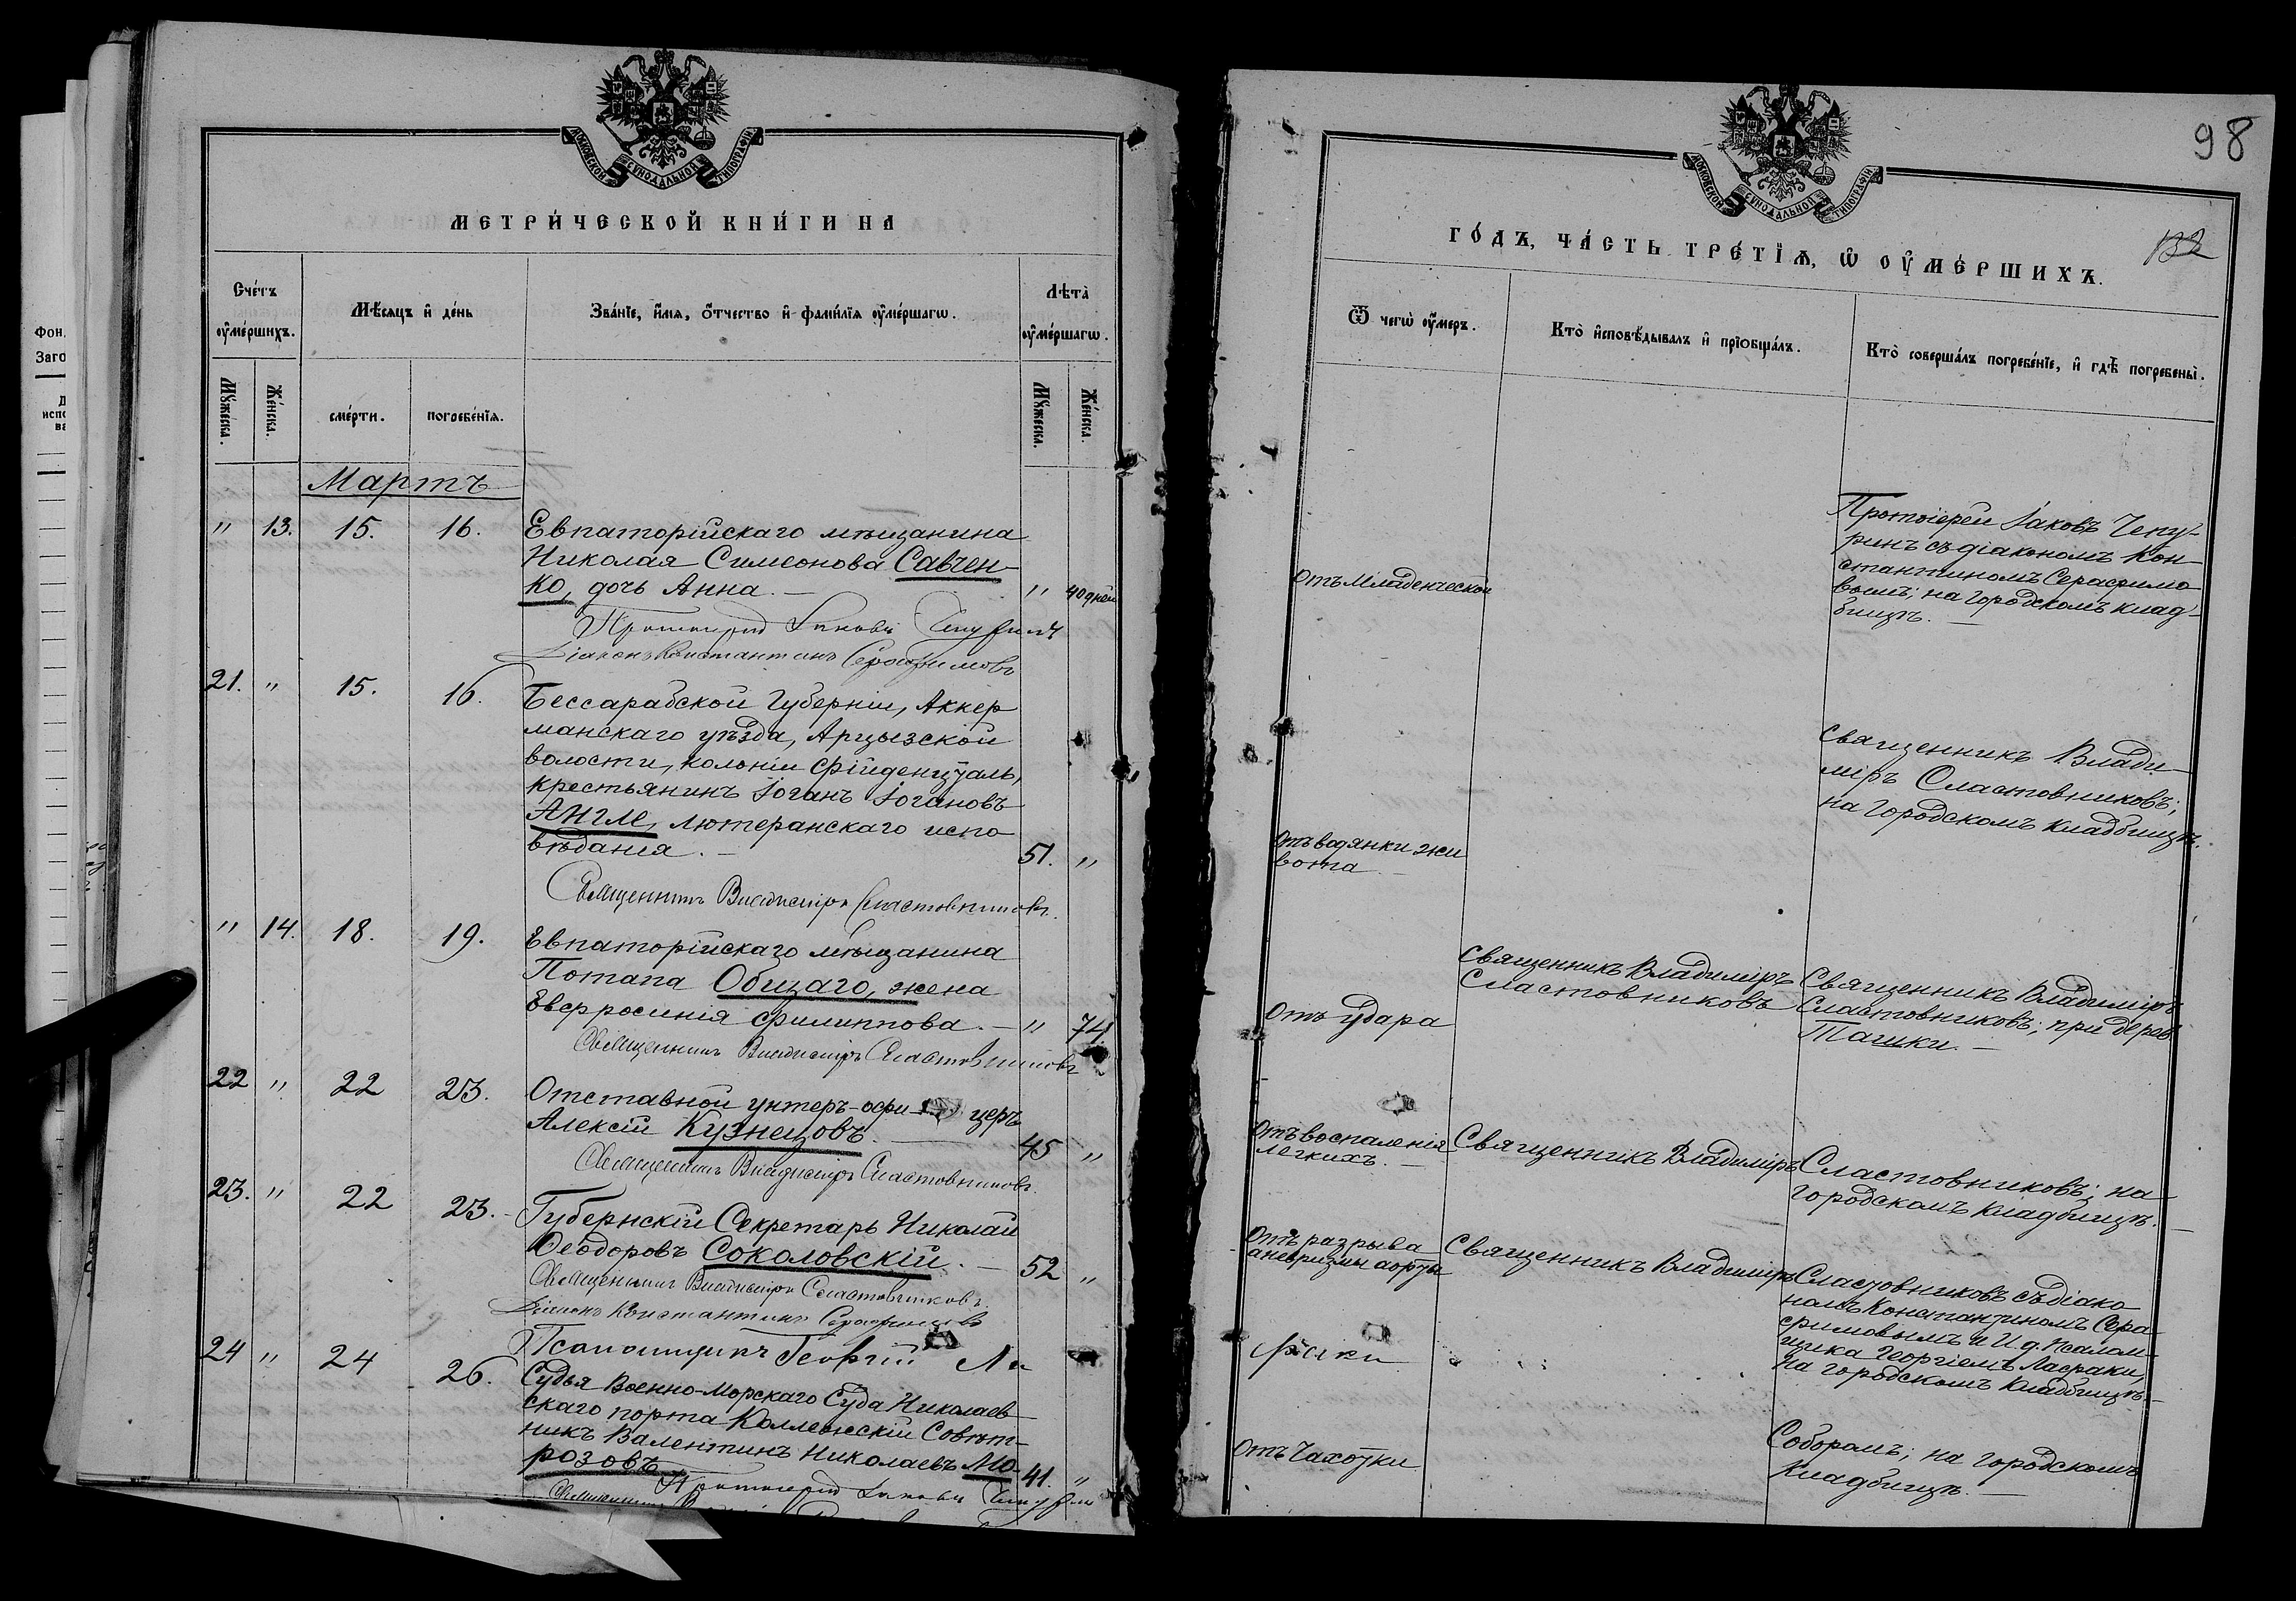 МОСКОВСКОЙ СѴНОДАЛЬНОЙ ТИПОГРАФІИ
МЕТРИ́ЧЕСКОЙ КНИ́ГИ НА
Сче́тъ ᲂу҆ме́ршихъ.
Мѣ́сяцъ и҆ де́нь
Зва́нїе, и҆́мя, ѻ҆́тчество и҆ фами́лїя ᲂу҆ме́ршагѡ.
Лѣ́та ᲂу҆ме́ршагѡ.
Мꙋ́жеска.
Же́нска.
сме́рти.
погребе́нїя.
Мꙋ́жеска.
Же́нска.
Мартъ
" 13. 15. 16. Евпаторійскаго мѣщанина
Николая Симеонова Савчен-
ко, дочь Анна. — " 40 дней
Протоіерей Іаковъ Чепуринъ
Діаконъ Константинъ Серафимовъ
21. " 15. 16. Бессарабской Губерніи, Аккер
манскаго уѣзда, Арцызской
волости, колоніи Фрійденцталь,
крестьянинъ Іоганъ Іогановъ
Англе, лютеранскаго испо
вѣданія. — 51. "
Священникъ Владиміръ Сластовниковъ.
" 14. 18. 19. Евпаторійскаго мѣщанина
Потапа Общаго, жена
Евфросинія Филиппова. — " 74.
Священникъ Владиміръ Сластовниковъ
22 " 22 23. Отставной унтеръ-офи-церъ
Алексій Кузнецовъ. — 45 "
Священникъ Владиміръ Сластовниковъ.
23. " 22 23. Губернскій Секретарь Николай
Ѳеодоровъ Соколовскій. — 52 "
Священникъ Владиміръ Сластовниковъ.
Діаконъ Константинъ Серафимовъ
Псаломщикъ Георгій Ла
24 " 24 26. Судья Военно-Морскаго Суда Николаев
скаго порта Коллежскій Совѣт-
никъ Валентинъ Николаевъ Мо-
розовъ 41. "
Протоіерей Іаковъ Чепурин
Священникъ
98
132
МОСКОВСКОЙ СѴНОДАЛЬНОЙ ТИПОГРАФІИ
ГО́ДЪ, ЧА́СТЬ ТРЕ́ТЇѦ, Ѡ҆ ОУ҆МЕ́РШИХЪ.
Ѿ чегѡ̀ ᲂу҆́меръ.
Кто̀ и҆сповѣ́дывалъ и҆ прїобща́лъ.
Кто̀ соверша́лъ погребе́нїе, и҆ гдѣ̀ погребены̀.
Отъ Младенческой
Протоіерей Іаковъ Чепу-
ринъ съ діакономъ Кон-
стантиномъ Серафимо
вымъ; на городскомъ клад-
бищѣ. —
Отъ водянки жи
вота. —
Священникъ Влади-
міръ Сластовниковъ;
на городскомъ кладбищѣ.
Отъ удара
Священникъ Владиміръ
Сластовниковъ
Священникъ Владиміръ
Сластовниковъ; при дерев
Ташки. —
Отъ воспаленія
легкихъ. —
Священникъ Владиміръ Сластовниковъ; на
городскомъ кладбищѣ. —
Отъ разрыва
аневризмы аорты
Священникъ Владиміръ Сластовниковъ съ діако
номъ Константиномъ Сера
фимовымъ и И.д. псалом-
щика Георгіемъ Ласфаки,
на городскомъ кладбищѣ. —
Отъ чахотки
Соборомъ; на городскомъ
кладбищѣ. —
Фон.
Заго